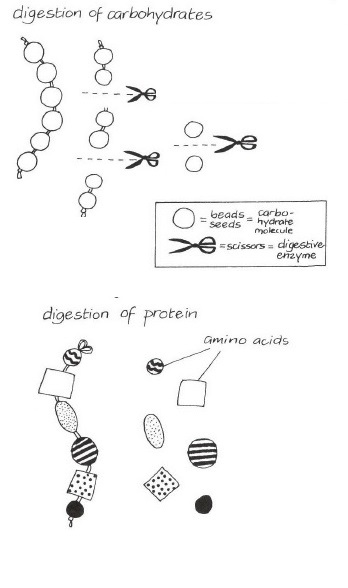 digestion of carbohydrates
= beads = carbo-
seeds hydrate
molecule
= scissors = digestive
enzyme
digestion of protein
amino acids